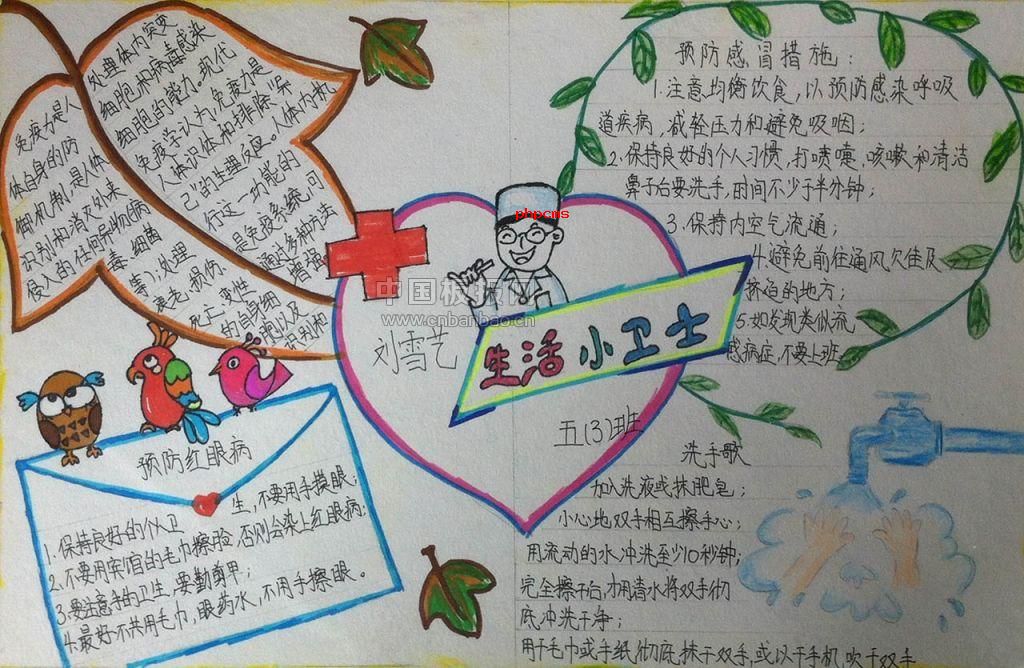 免疫力是人
体自身的防
御机制,是人体
识别和消灭外来
侵入的任何异物(病
毒、细菌
等),处理
衰老、损伤、
死亡、变性
的自身细
胞以及
识别和
处理体内突变
细胞和病毒感染
细胞的能力。现代
免疫学认为,免疫力是
人体识体和排除“异
己”的生理反应。人体内执
行这一功能的
是免疫系统,可
通过多种方法
增强
预防感冒措施:
1.注意均衡饮食,以预防感染呼吸
道疾病,减轻压力和避免吸咽;
2.保持良好的个人习惯,打喷嚏、咳嗽和清洁
鼻子后要洗手,时间不少于半分钟;
3.保持内空气流通;
4.避免前往通风欠佳及
挤的地方;
5.如发现类似流
感病症,不要上班
phpcms
中国板报网
www.cnbanbao.cn
刘雪艺
生活小卫士
五(3)班
预防红眼病
1.保持良好的个人卫生,不要用手摸眼;
2.不要用宾馆的毛巾擦脸,否则会染上红眼病;
3.要注意手的卫生,要勤剪甲;
4.最好不共用毛巾,眼药水,不用手擦眼。
洗手歌
加入洗液或抹肥皂;
小心地双手相互擦手心;
用流动的水冲洗至少10秒钟;
完全擦干后,才用清水将双手彻
底冲洗干净;
用干毛巾或手纸,彻底抹干双手,或以干手机吹干双手